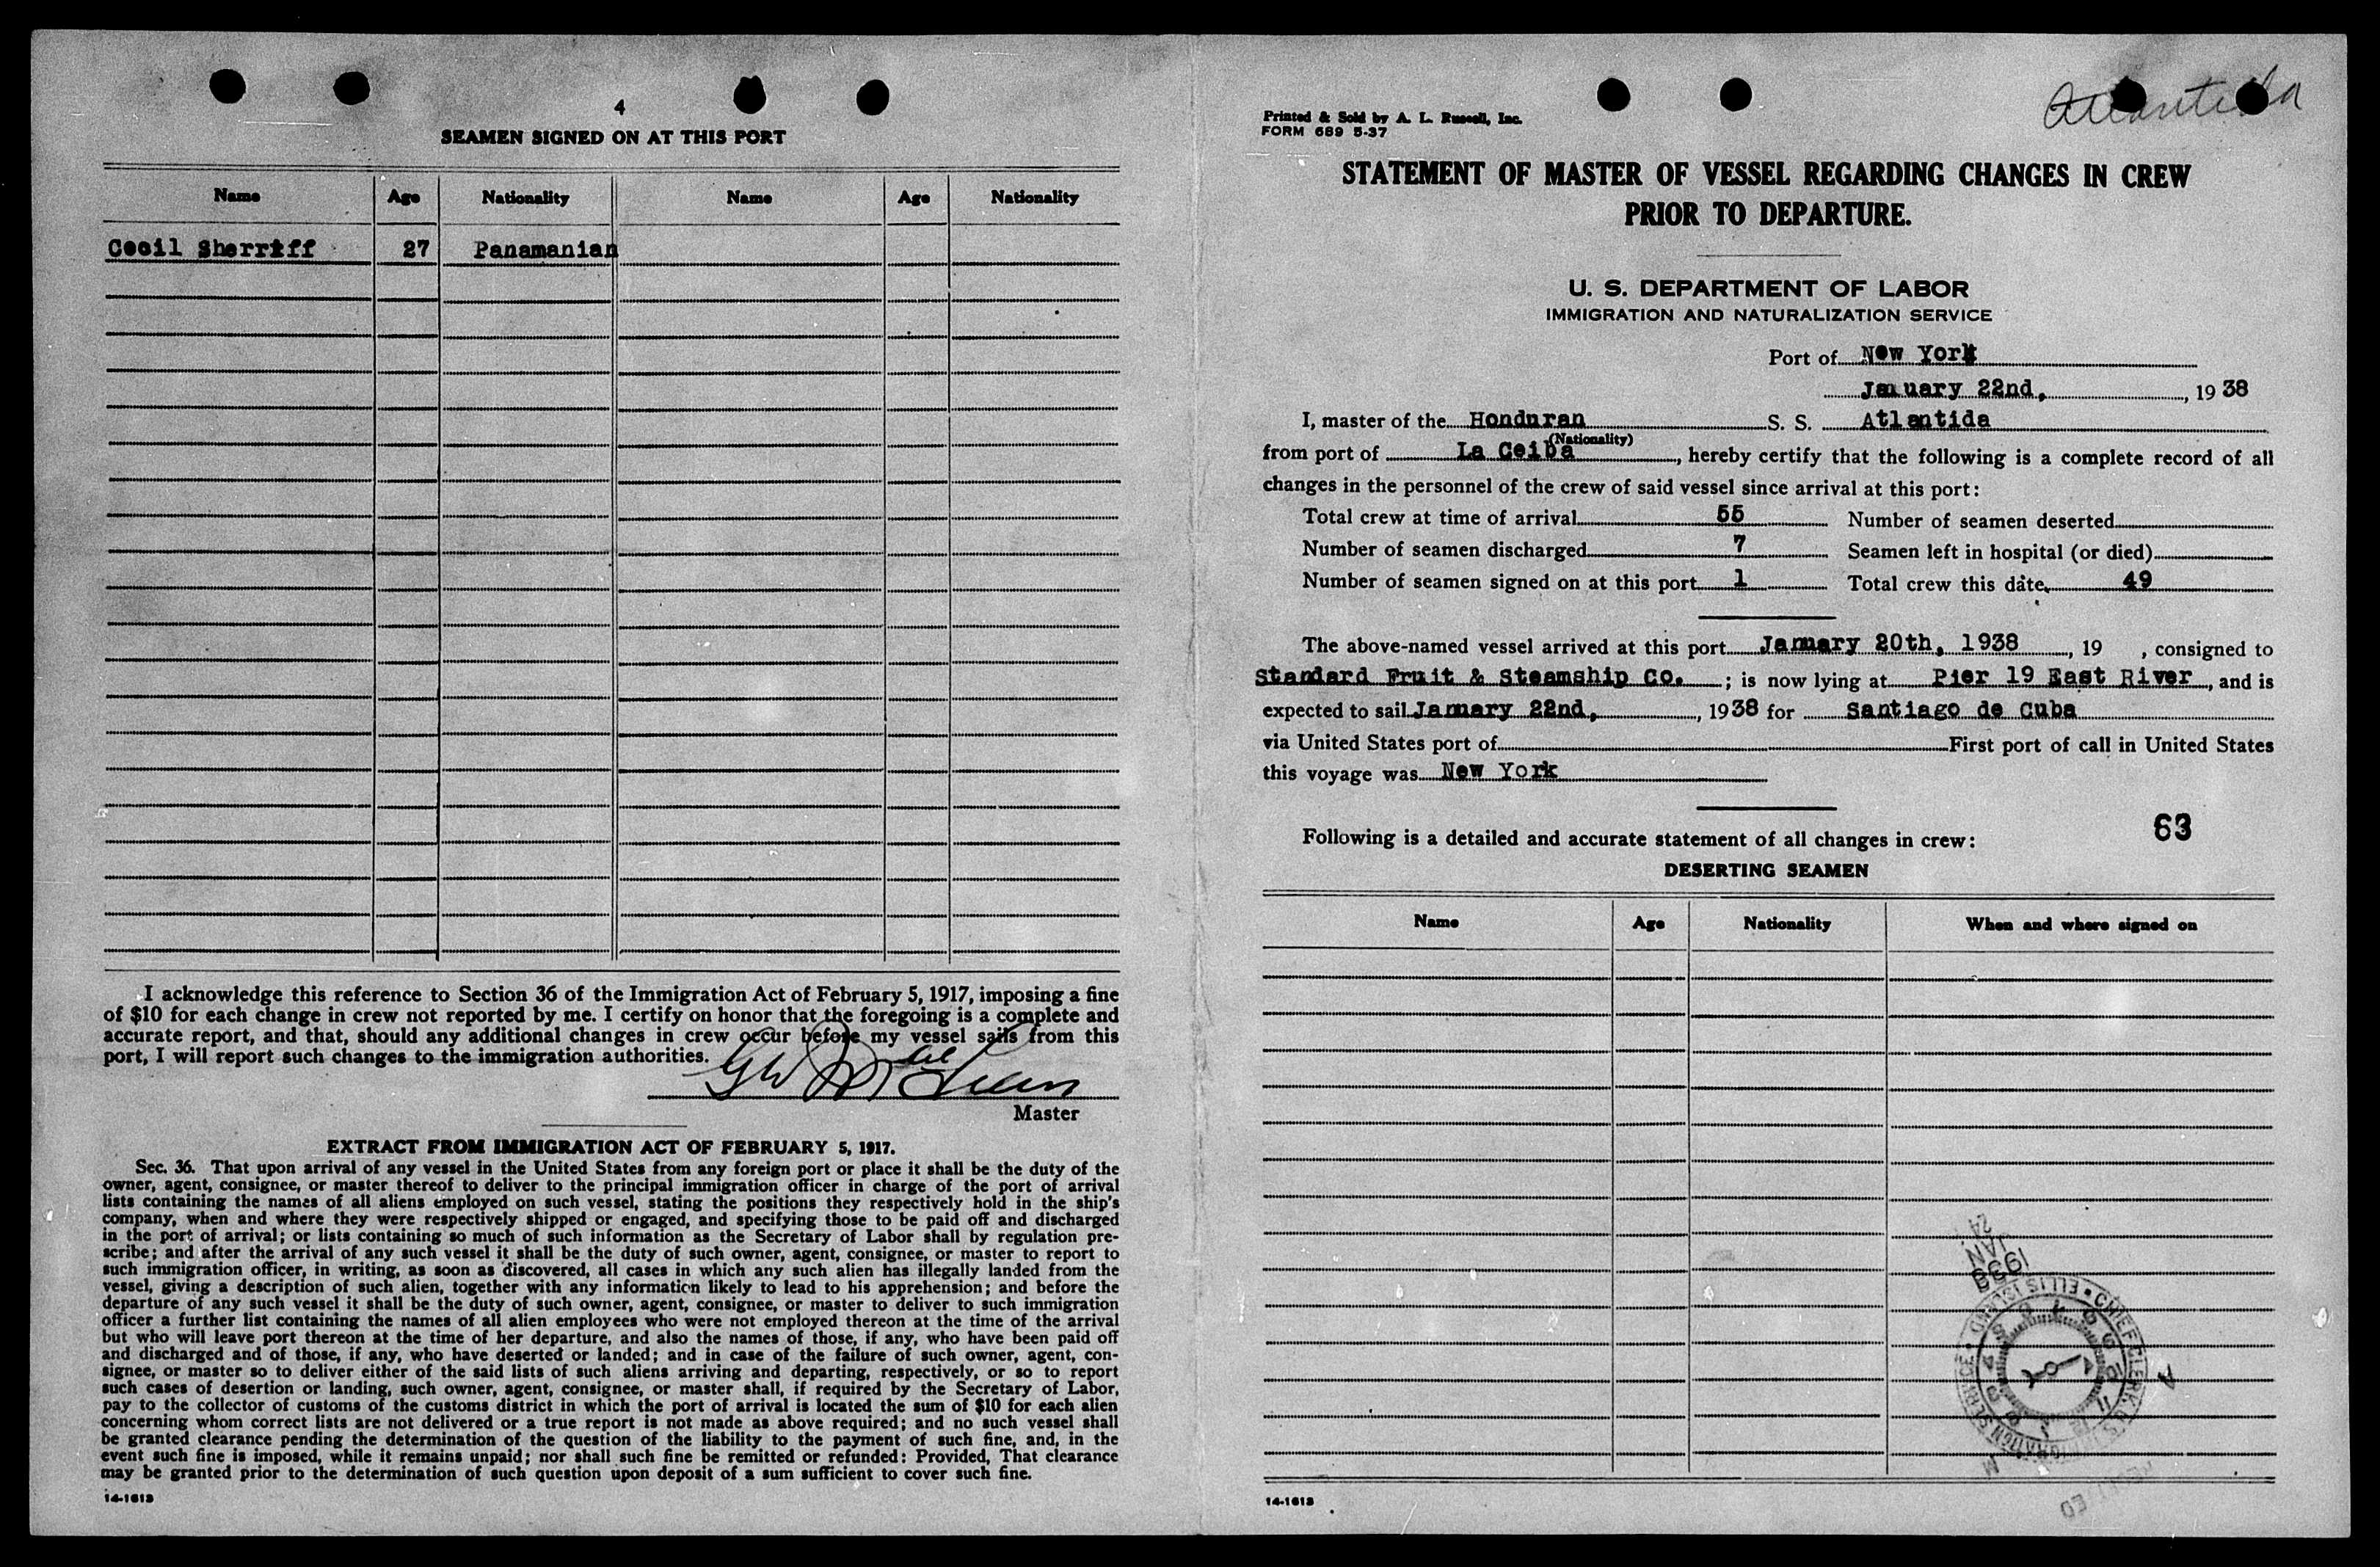 4
SEAMEN SIGNED ON AT THIS PORT
Name Age Nationality Name Age Nationality
Cecil Sherriff 27 Panamanian
I acknowledge this reference to Section 36 of the Immigration Act of February 5, 1917, imposing a fine
of $10 for each change in crew not reported by me. I certify on honor that the foregoing is a complete and
accurate report, and that, should any additional changes in crew occur before my vessel sails from this
port, I will report such changes to the immigration authorities.
Master
EXTRACT FROM IMMIGRATION ACT OF FEBRUARY 5, 1917.
Sec. 36. That upon arrival of any vessel in the United States from any foreign port or place it shall be the duty of the
owner, agent, consignee, or master thereof to deliver to the principal immigration officer in charge of the port of arrival
lists containing the names of all aliens employed on such vessel, stating the positions they respectively hold in the ship's
company, when and where they were respectively shipped or engaged, and specifying those to be paid off and discharged
in the port of arrival; or lists containing so much of such information as the Secretary of Labor shall by regulation pre-
scribe; and after the arrival of any such vessel it shall be the duty of such owner, agent, consignee, or master to report to
such immigration officer, in writing, as soon as discovered, all cases in which any such alien has illegally landed from the
vessel, giving a description of such alien, together with any information likely to lead to his apprehension; and before the
departure of any such vessel it shall be the duty of such owner, agent, consignee, or master to deliver to such immigration
officer a further list containing the names of all alien employees who were not employed thereon at the time of the arrival
but who will leave port thereon at the time of her departure, and also the names of those, if any, who have been paid off
and discharged and of those, if any, who have deserted or landed; and in case of the failure of such owner, agent, con-
signee, or master so to deliver either of the said lists of such aliens arriving and departing, respectively, or so to report
such cases of desertion or landing, such owner, agent, consignee, or master shall, if required by the Secretary of Labor,
pay to the collector of customs of the customs district in which the port of arrival is located the sum of $10 for each alien
concerning whom correct lists are not delivered or a true report is not made as above required; and no such vessel shall
be granted clearance pending the determination of the question of the liability to the payment of such fine, and, in the
event such fine is imposed, while it remains unpaid; nor shall such fine be remitted or refunded: Provided, That clearance
may be granted prior to the determination of such question upon deposit of a sum sufficient to cover such fine.
14-1613
Atlantida
Printed & Sold by A. L. Russell, Inc.
FORM 689 5-37
STATEMENT OF MASTER OF VESSEL REGARDING CHANGES IN CREW
PRIOR TO DEPARTURE.
U. S. DEPARTMENT OF LABOR
IMMIGRATION AND NATURALIZATION SERVICE
Port of New York
January 22nd, , 19 38
I, master of the Honduran S. S. Atlantida
(Nationality)
from port of La Ceiba , hereby certify that the following is a complete record of all
changes in the personnel of the crew of said vessel since arrival at this port:
Total crew at time of arrival 55 Number of seamen deserted
Number of seamen discharged 7 Seamen left in hospital (or died)
Number of seamen signed on at this port 1 Total crew this date, 49
The above-named vessel arrived at this port January 20th, 1938 , 19 , consigned to
Standard Fruit & Steamship Co. ; is now lying at Pier 19 East River , and is
expected to sail January 22nd, , 1938 for Santiago de Cuba
via United States port of First port of call in United States
this voyage was New York
63
Following is a detailed and accurate statement of all changes in crew:
DESERTING SEAMEN
Name Age Nationality When and where signed on
JAN
ELLIS ISLAND • CHIEF CLERK
14-1613